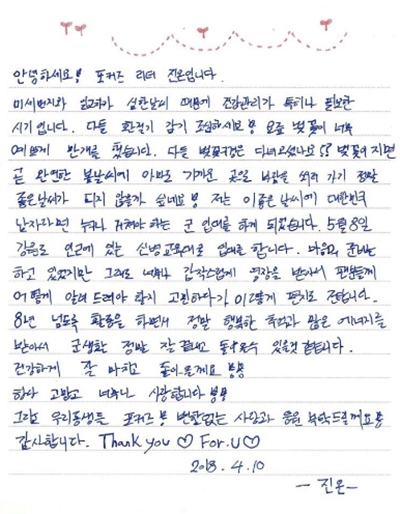 안녕하세요! 포커즈 리더 진온입니다.
미세먼지와 일교차 심한날씨 때문에 건강관리가 특히나 필요한
시기 입니다. 다들 환절기 감기 조심하세요! 요즘 벚꽃이 너무
예쁘게 만개를 했습니다. 다들 벚꽃구경은 다녀오셨나요?? 벚꽃이 지면
곧 완연한 봄날씨에 야외로 가까운 곳을 바람을 쐬러 가기 정말
좋은날씨가 되지 않을까 싶네요! 저는 이좋은 날씨에 대한민국
남자라면 누구나 거쳐야 하는 군 입대를 하게 되었습니다. 5월 8일
강원도 인근에 있는 신병교육대로 입대를 합니다. 마음의 준비는
하고 있었지만 그래도 너무나 갑작스럽게 영장을 받아서 팬분들께
어떻게 알려 드려야 할지 고민하다가 이렇게 편지로 전합니다.
8년 넘도록 활동을 하면서 정말 행복한 추억과 많은 에너지를
받아서 군생활 정말 잘 끝내고 돌아올수 있을것 같습니다.
건강하게 잘 마치고 돌아올게요!!
항상 고맙고 너무나 사랑합니다!!
그리고 우리동생들 포커즈! 변함없는 사랑과 응원 부탁드릴게요!
감사합니다. Thank you ♡ For.U♡
2018.4.10
- 진온 -